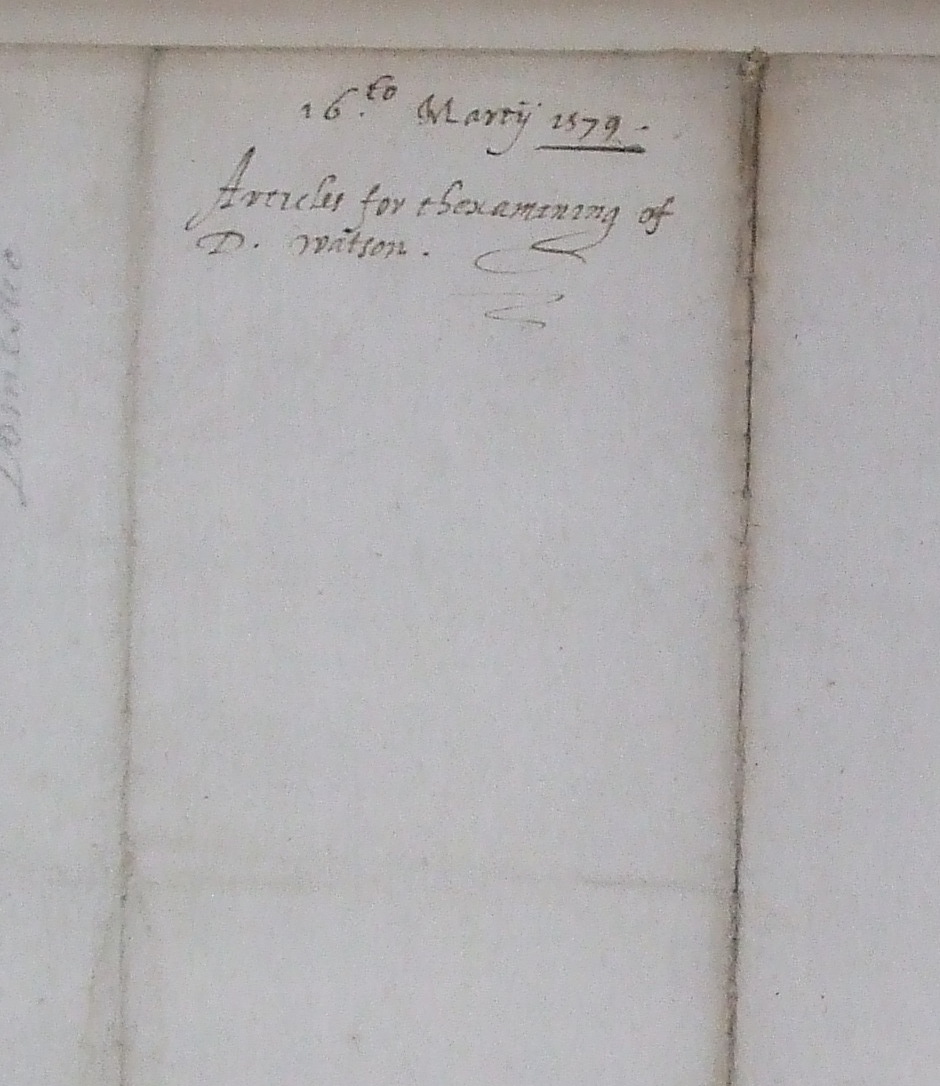 16.to Martij 1579.
Articles for thexamining of
D. Watson.
Domestic